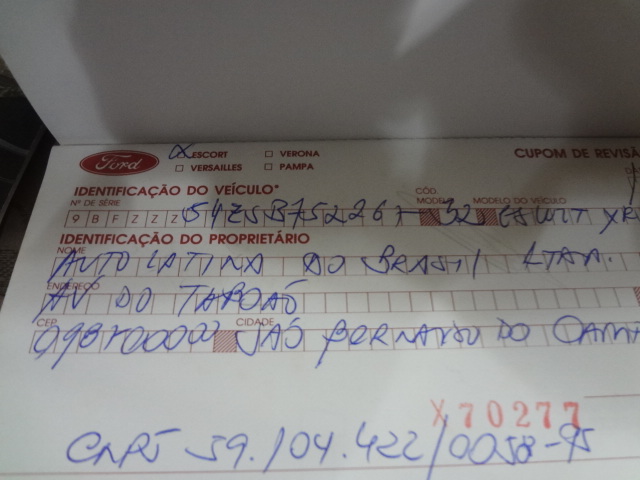 Ford
X ESCORT □ VERONA
□ VERSAILLES □ PAMPA
CUPOM DE REVISÃ
IDENTIFICAÇÃO DO VEÍCULO*
Nº DE SÉRIE CÓD. MODELO MODELO DO VEÍCULO
9BFZZZ54ZSB752267 32 ESCORT XR
IDENTIFICAÇÃO DO PROPRIETÁRIO
NOME
AUTO LATINA DO BRASIL LTDA.
ENDEREÇO
AV DO TABOAÕ
CEP CIDADE
SAÕ BERNARDO DO CAMP
X70277
59.104.422/0058-95